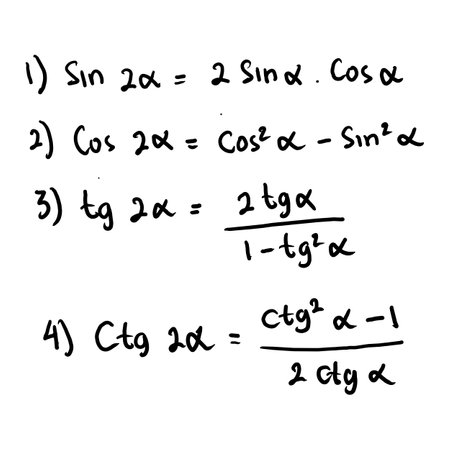 1) Sin 2α = 2 Sin α . Cos α
2) Cos 2α = Cos² α - Sin² α
3) tg 2α = 2 tg α / 1 - tg² α
4) Ctg 2α = Ctg² α - 1 / 2 Ctg α